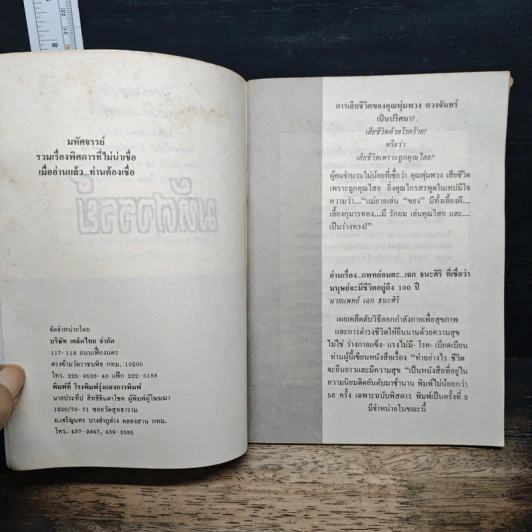 มหัศจรรย์
รวมเรื่องพิศดารที่ไม่น่าเชื่อ
เมื่ออ่านแล้ว...ท่านต้องเชื่อ
จัดจำหน่ายโดย
บริษัท เคล็ดไทย จำกัด
117-119 ถนนเฟื่องนคร
ตรงข้ามวัดราชบพิธ กทม. 10200
โทร. 225-9536-40 แฟ็ก 222-5188
พิมพ์ที่ โรงพิมพ์รุ่งแสงการพิมพ์
นายประทีป สิทธิธินดาโชค ผู้พิมพ์ผู้โฆษณา
1220/70-71 ซอยวัดสุทธาราม
ถ.เจริญนคร บางลำภูล่าง คลองสาน กทม.
โทร. 437-2947, 439-2361
การเสียชีวิตของคุณพุ่มพวง ดวงจันทร์
เป็นปริศนา?
เสียชีวิตด้วยโรคร้าย?
หรือว่า
เสียชีวิตเพราะถูกคุณไสย?
ผู้คนจำนวนไม่น้อยที่เชื่อว่า คุณพุ่มพวง เสียชีวิต
เพราะถูกคุณไสย ยิ่งคุณไกรสรพูดในเทปมีใจ
ความว่า..."แม่ยายเล่น "ของ" มีทั้งเลี้ยงผี...
เลี้ยงกุมารทอง...มี รักยม เล่นคุณไสย และ...
เป็นร่างทรง!"
อ่านเรื่อง...แพทย์อมตะ..เฉก ธนะสิริ ที่เชื่อว่า
มนุษย์จะมีชีวิตอยู่ถึง 100 ปี
นายแพทย์ เฉก ธนะสิริ
เผยเคล็ดลับวิธีออกกำลังกายเพื่อสุขภาพ
และการดำรงชีวิตให้ยืนนานด้วยความสุข
ไม่ใช่ ร่างกายแข็ง- แรงไม่มี- โรค- เบียดเบียน
ท่านผู้นี้เขียนหนังสือเรื่อง "ทำอย่างไร ชีวิต
จะยืนยาวและมีความสุข "เป็นหนังสือที่อยู่ใน
ความนิยมติดอันดับมาช้านาน พิมพ์ไม่น้อยกว่า
56 ครั้ง เฉพาะฉบับพิสดาร พิมพ์เป็นครั้งที่ 3
มีจำหน่ายในขณะนี้